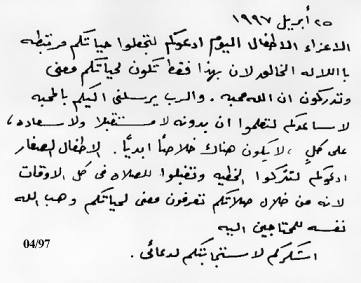 ٢٥ أبريل ١٩٩٧
الاعزاء الاطفال اليوم ادعوكم لتجعلوا حياتكم مرتبطه
باللاله الخالق لان بهذا فقط تكون لحياتكم معنى
وتدركون ان الله محبه . والرب يرسلنى اليكم بالمحبه
لاساعدكم لتعلموا ان بدونه لا مستقبلا ولا سعاده ،
على كلٍ ، لا يكون هناك خلاصاً ابديًا . الاطفال الصغار
ادعوكم لتتركوا الخطيه وتقبلوا للصلاه فى كل الاوقات
لانه من خلال صلاتكم تعرفون معنى لحياتكم وهب الله
نفسه للمحتاجين اليه
اشكركم لاستجابتكم لدعائى .
04/97